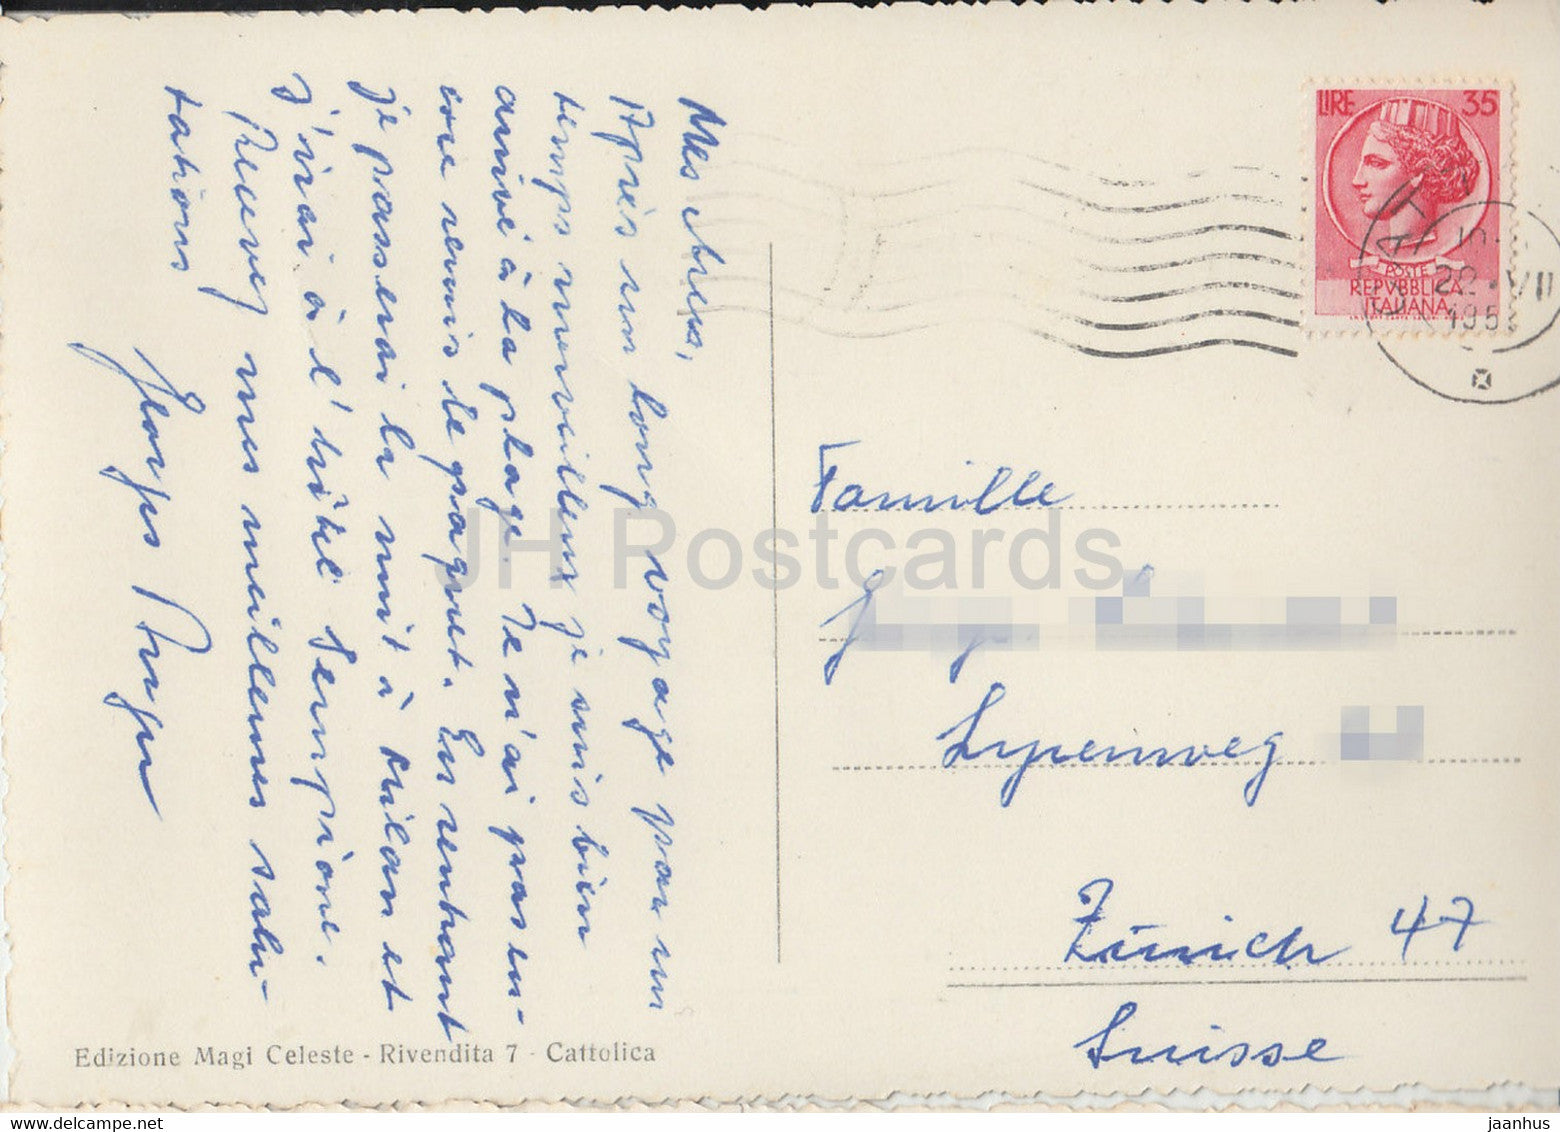 Mes chers,
Après un long voyage par un
temps merveilleux je suis bien
arrivé à la plage. Je n'ai pas en-
core remis le paquet. En rentrant
je passerai la nuit à Milan et
j'irai à l'hôtel Sempione.
Recevez mes meilleures salu-
tations
Edizione Magi Celeste - Rivendita 7 - Cattolica
LIRE 35
POSTE
REPVBBLICA
ITALIANA
CATTOLICA
22 · VII
195
Famille
Zürich 47
Suisse
JH Postcards
www.delcampe.net
jaanhus